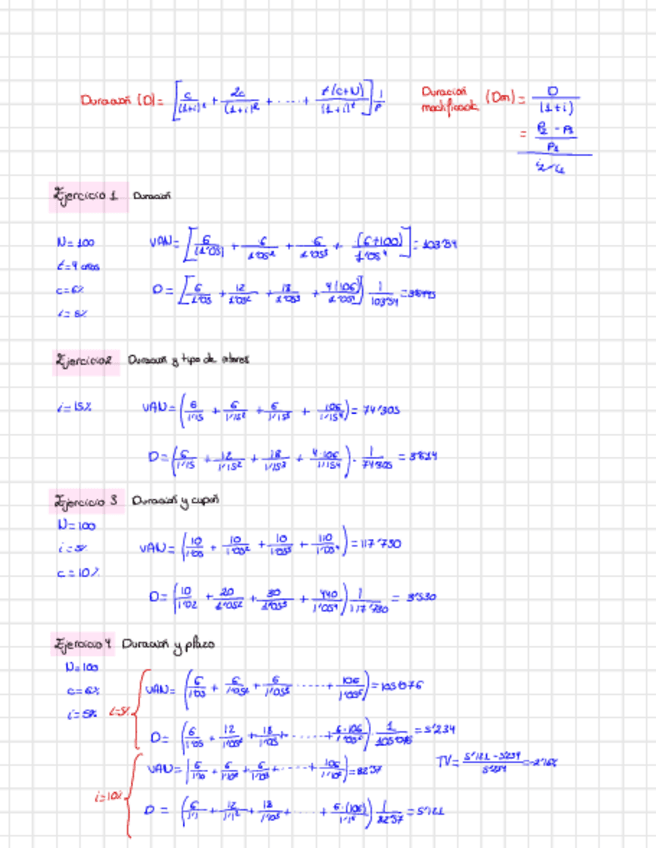 Duración (D) = [c/(1+i)¹ + 2c/(1+i)² + ..... + t(c+N)/(1+i)ᵗ] 1/P
Duración modificada (Dm) = D/(1+i)
= ((P2 - P1)/P1)/(i2-i1)
Ejercicio 1 Duración
N=100
t=4 años
c=6%
i=5%
VAN= [6/(1'05) + 6/1'05² + 6/1'05³ + (6+100)/1'05⁴] = 103'54
D= [6/1'05 + 12/1'05² + 18/1'05³ + 4(106)/1'05⁴] 1/103'54 =
Ejercicio 2 Duración y tipo de interés
i=15%
VAN= (6/1'15 + 6/1'15² + 6/1'15³ + 106/1'15⁴) = 74'305
D= (6/1'15 + 12/1'15² + 18/1'15³ + 4·106/1'15⁴) · 1/74'305 =
Ejercicio 3 Duración y cupón
N=100
i=5%
c=10%
VAN= (10/1'05 + 10/1'05² + 10/1'05³ + 110/1'05⁴) = 117'730
D= (10/1'02 + 20/1'05² + 30/1'05³ + 440/1'05⁴) 1/117'730 = 3'530
Ejercicio 4 Duración y plazo
N=100
c=6%
i=5%
i=5%
VAN= (6/1'05 + 6/1'05² + 6/1'05³ ...... + 106/1'05⁶) = 105'076
D= (6/1'05 + 12/1'05² + 18/1'05³ ...... + 6·106/1'05⁶) · 1/105'076 = 5'234
i=10%
VAN= (6/1'10 + 6/1'10² + 6/1'10³ ...... + 106/1'10⁶) = 82'57
TV= (5'121 - 5'234)/5'234 = -2'16%
D = (6/1'1 + 12/1'1² + 18/1'10³ ...... + 6·(106)/1'1⁶) 1/82'57 = 5'121